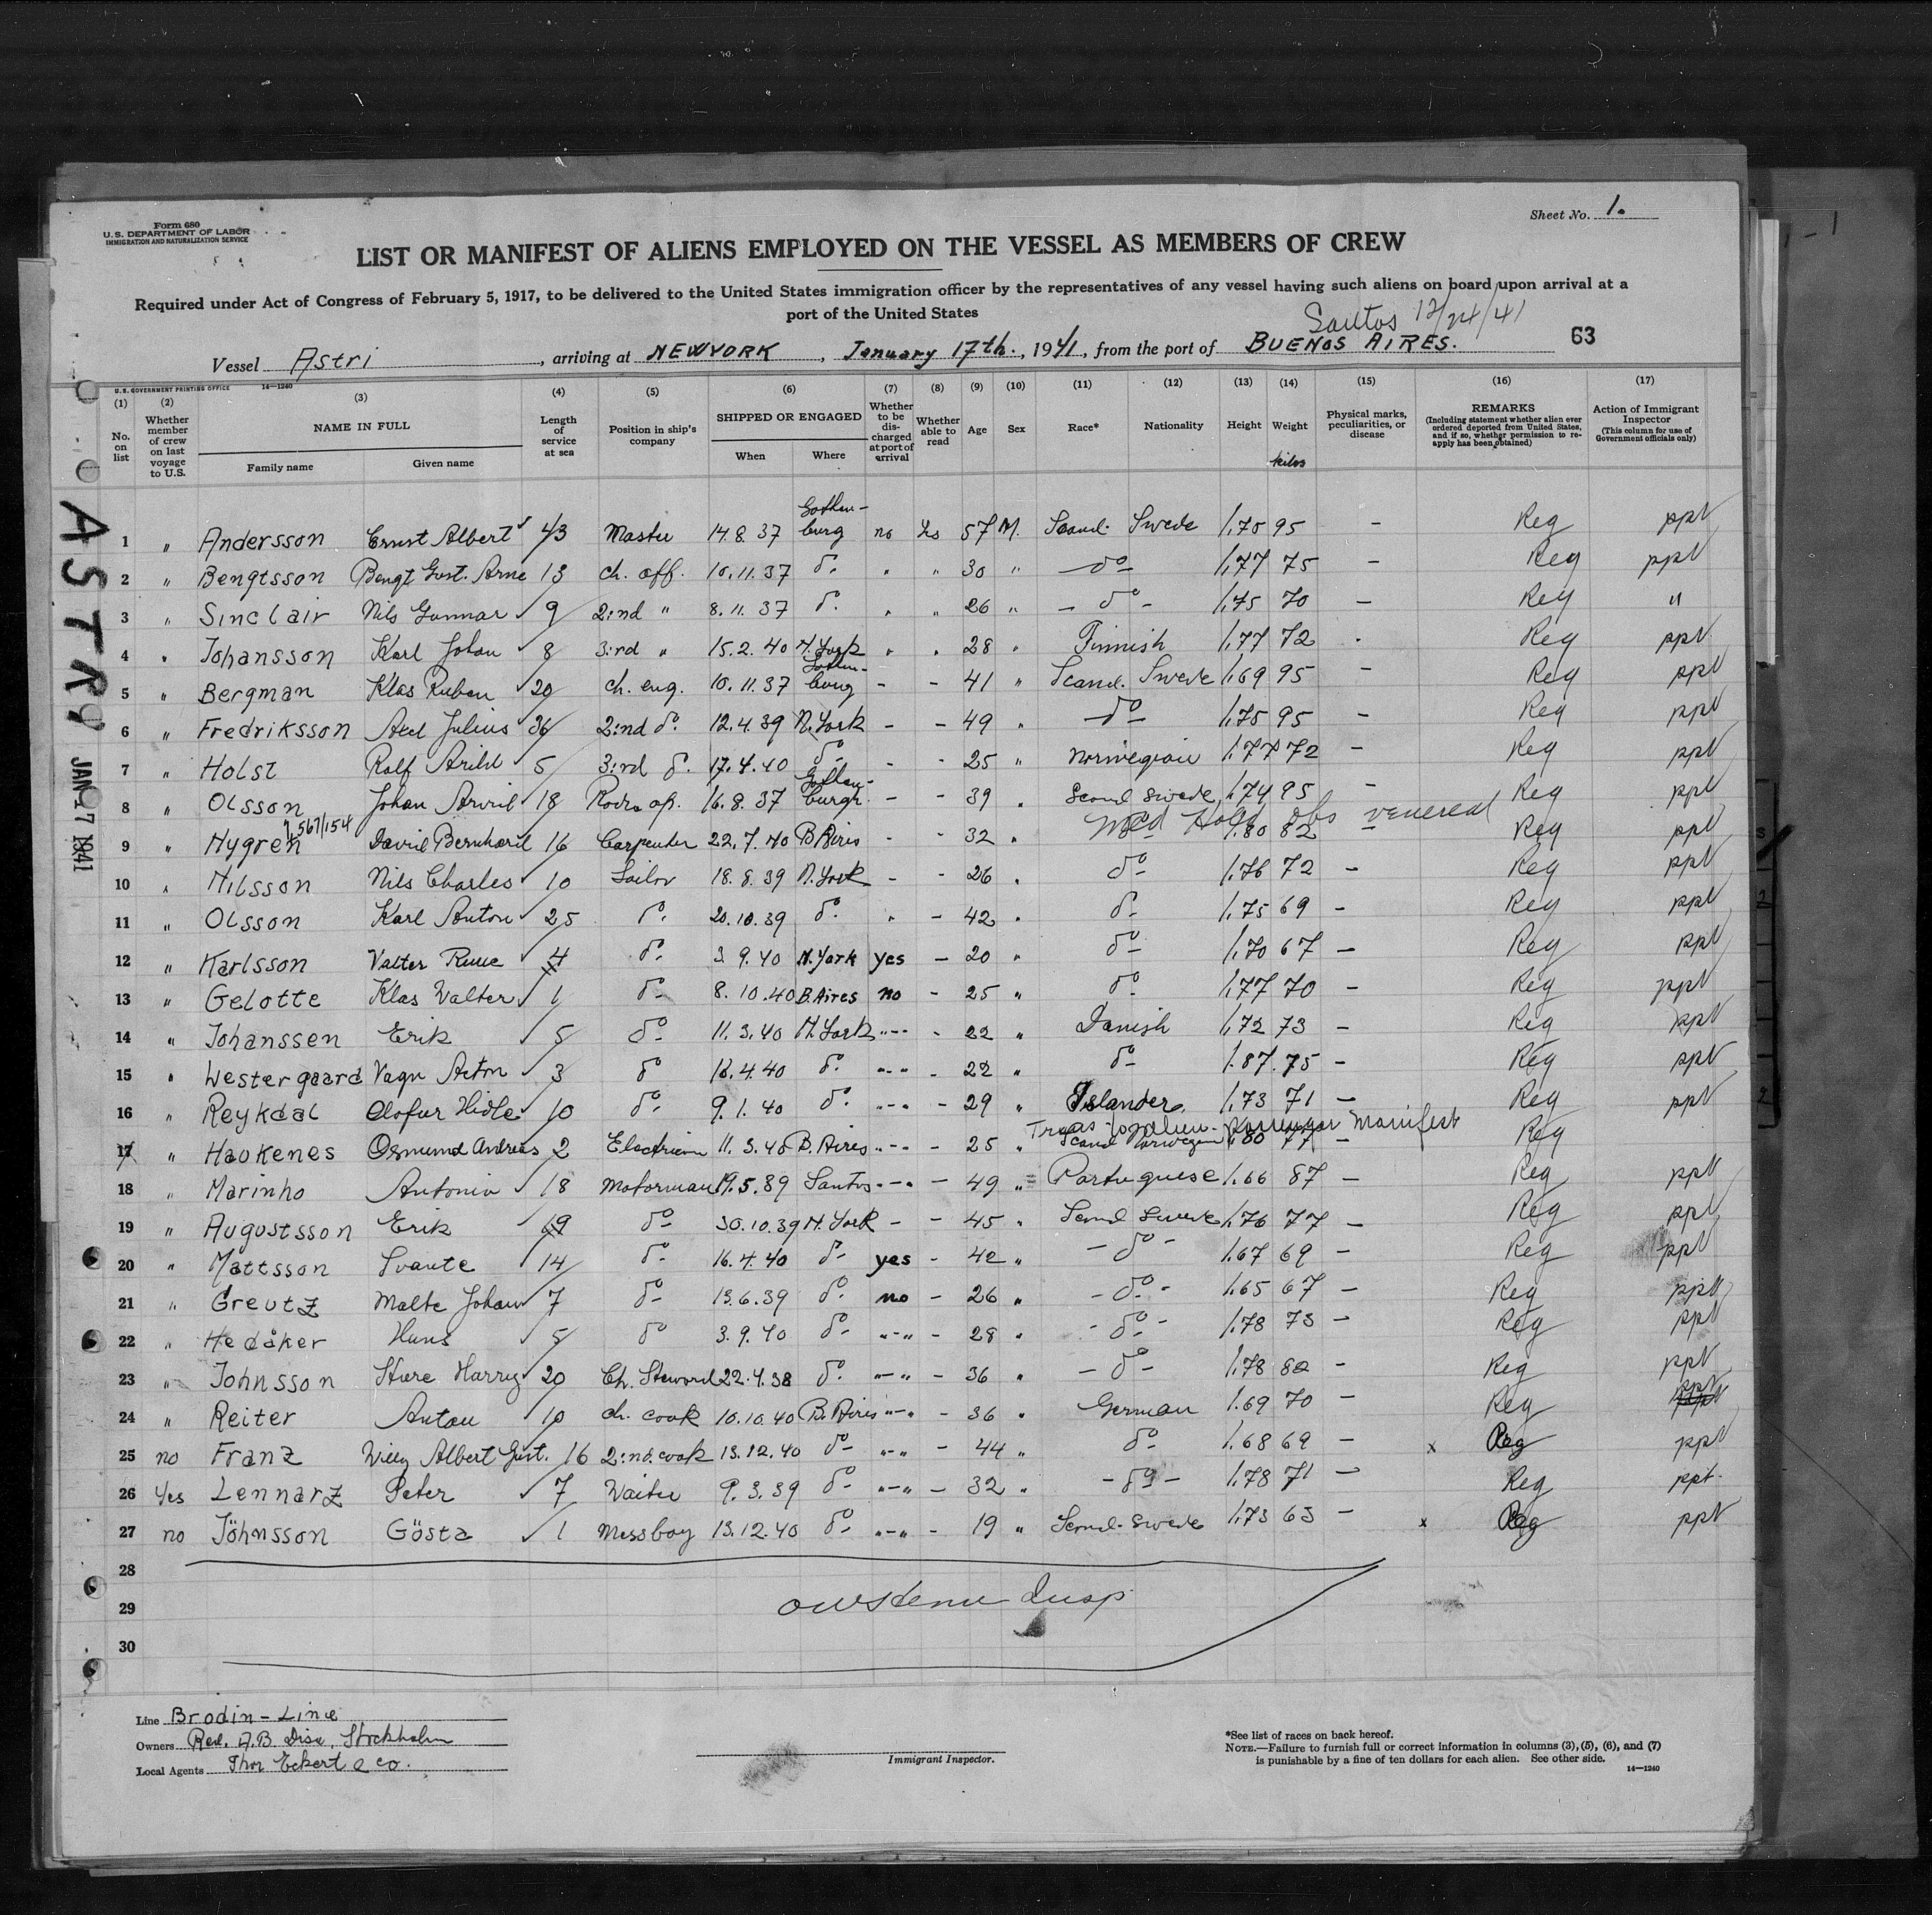 Form 680
U.S. DEPARTMENT OF LABOR
IMMIGRATION AND NATURALIZATION SERVICE
Sheet No. 1.
LIST OR MANIFEST OF ALIENS EMPLOYED ON THE VESSEL AS MEMBERS OF CREW
Required under Act of Congress of February 5, 1917, to be delivered to the United States immigration officer by the representatives of any vessel having such aliens on board upon arrival at a
port of the United States
Santos 12/24/41
Vessel Astri, arriving at NEWYORK, January 17th., 1941, from the port of BUENOS AIRES. 63
U.S. GOVERNMENT PRINTING OFFICE 14—1240
(1) No. on list
(2) Whether member of crew on last voyage to U.S.
(3) NAME IN FULL Family name Given name
(4) Length of service at sea
(5) Position in ship's company
(6) SHIPPED OR ENGAGED When Where
(7) Whether to be discharged at port of arrival
(8) Whether able to read
(9) Age
(10) Sex
(11) Race*
(12) Nationality
(13) Height
(14) Weight kilos
(15) Physical marks, peculiarities, or disease
(16) REMARKS (Including statement whether alien ever ordered deported from United States, and if so, whether permission to reapply has been obtained)
(17) Action of Immigrant Inspector (This column for use of Government officials only)
ASTRY JAN 17 1941
1 " Andersson Ernst Albert 43 Master 14.8.37 Gothenburg no Yes 57 M. Scand. Swede 1.70 95 - Reg ppt
2 " Bengtsson Bengt Gust. Arne 13 ch. off. 10.11.37 do. " " 30 " -do- 1.77 75 - Reg ppt
3 " Sinclair Nils Gunnar 9 2:nd " 8.11.37 do. " " 26 " -do- 1.75 70 - Reg "
4 " Johansson Karl Johan 8 3:rd " 15.2.40 N.York " " 28 " Finnish 1.77 72 - Reg ppt
5 " Bergman Klas Ruben 20 ch. eng. 10.11.37 Gothenburg - - 41 " Scand. Swede 1.69 95 - Reg ppt
6 " Fredriksson Axel Julius 26 2:nd do. 12.4.39 N.York - - 49 " -do- 1.75 95 - Reg ppt
7 " Holst Rolf Arild 5 3:rd do. 17.4.40 do - - 25 " Norwegian 1.77 72 - Reg ppt
8 " Olsson Johan Arvid 18 Radio op. 16.8.37 Gothenburg. - - 39 " Scand Swede 1.74 95 - Reg ppt
567/154 Med Hold obs venereal
9 " Nygren David Bernhard 16 Carpenter 22.7.40 B.Aires - - 32 " 1.80 82 - Reg ppt
10 " Nilsson Nils Charles 10 Sailor 18.8.39 N.York - - 26 " do- 1.76 72 - Reg ppt
11 " Olsson Karl Anton 25 do. 20.10.39 do. " - 42 " do- 1.75 69 - Reg ppt
12 " Karlsson Valter Rune 4 do. 3.9.40 N.York yes - 20 " do- 1.70 67 - Reg ppt
13 " Gelotte Klas Walter 1 do- 8.10.40 B.Aires no - 25 " do- 1.77 70 - Reg ppt
14 " Johanssen Erik 5 do- 11.3.40 N.York "-" - 22 " Danish 1.72 73 - Reg ppt
15 " Westergaard Vagn 3 do 18.4.40 do. "-" - 22 " do- 1.87 75 - Reg ppt
16 " Reykdal Olafur 10 do- 9.1.40 do. "-" - 29 " Islander 1.73 71 - Reg ppt
Trans to alien Passenger Manifest
17 " Haukenes Osmund Andreas 2 Electrician 11.3.40 B.Aires "-" - 25 " Scand Norwegian 1.80 77 - Reg
18 " Marinho Antonio 18 Motorman 19.5.39 Santos "-" - 49 " Portuguese 1.66 87 - Reg ppt
19 " Augustsson Erik 19 do- 30.10.39 N.York - - 45 " Scand Swede 1.76 77 - Reg ppt
20 " Mattsson Svante 14 do- 16.4.40 do- yes - 42 " -do- 1.67 69 - Reg ppt
21 " Greutz Malte Johan 7 do- 13.6.39 do. no - 26 " -do- 1.65 67 - Reg ppt
22 " Hedåker Hans 5 do 3.9.40 do- "-" - 28 " -do- 1.78 73 - Reg ppt
23 " Johnsson Sture Harry 20 Ch. Steward 22.4.38 do. "-" - 36 " -do- 1.78 82 - Reg ppt
24 " Reiter Anton 10 ch. cook 10.10.40 B.Aires "-" - 36 " German 1.69 70 - Reg ppt
25 no Franz Willy Albert Gust. 16 2:nd cook 13.12.40 do- "-" - 44 " do- 1.68 69 - x Reg ppt
26 Yes Lennarz Peter 7 Waiter 9.3.39 do- "-" - 32 " -do- 1.78 71 - Reg ppt.
27 no Jöhnsson Gösta 1 Messboy 13.12.40 do- "-" - 19 " Scand. Swede 1.73 63 - x Reg ppt
28
29
30
Insp
Line Brodin-Line
Owners Red. A.B. Disa, Stockholm
Local Agents Thor Eckert & co.
Immigrant Inspector.
*See list of races on back hereof.
NOTE.—Failure to furnish full or correct information in columns (3), (5), (6), and (7)
is punishable by a fine of ten dollars for each alien. See other side.
14—1240